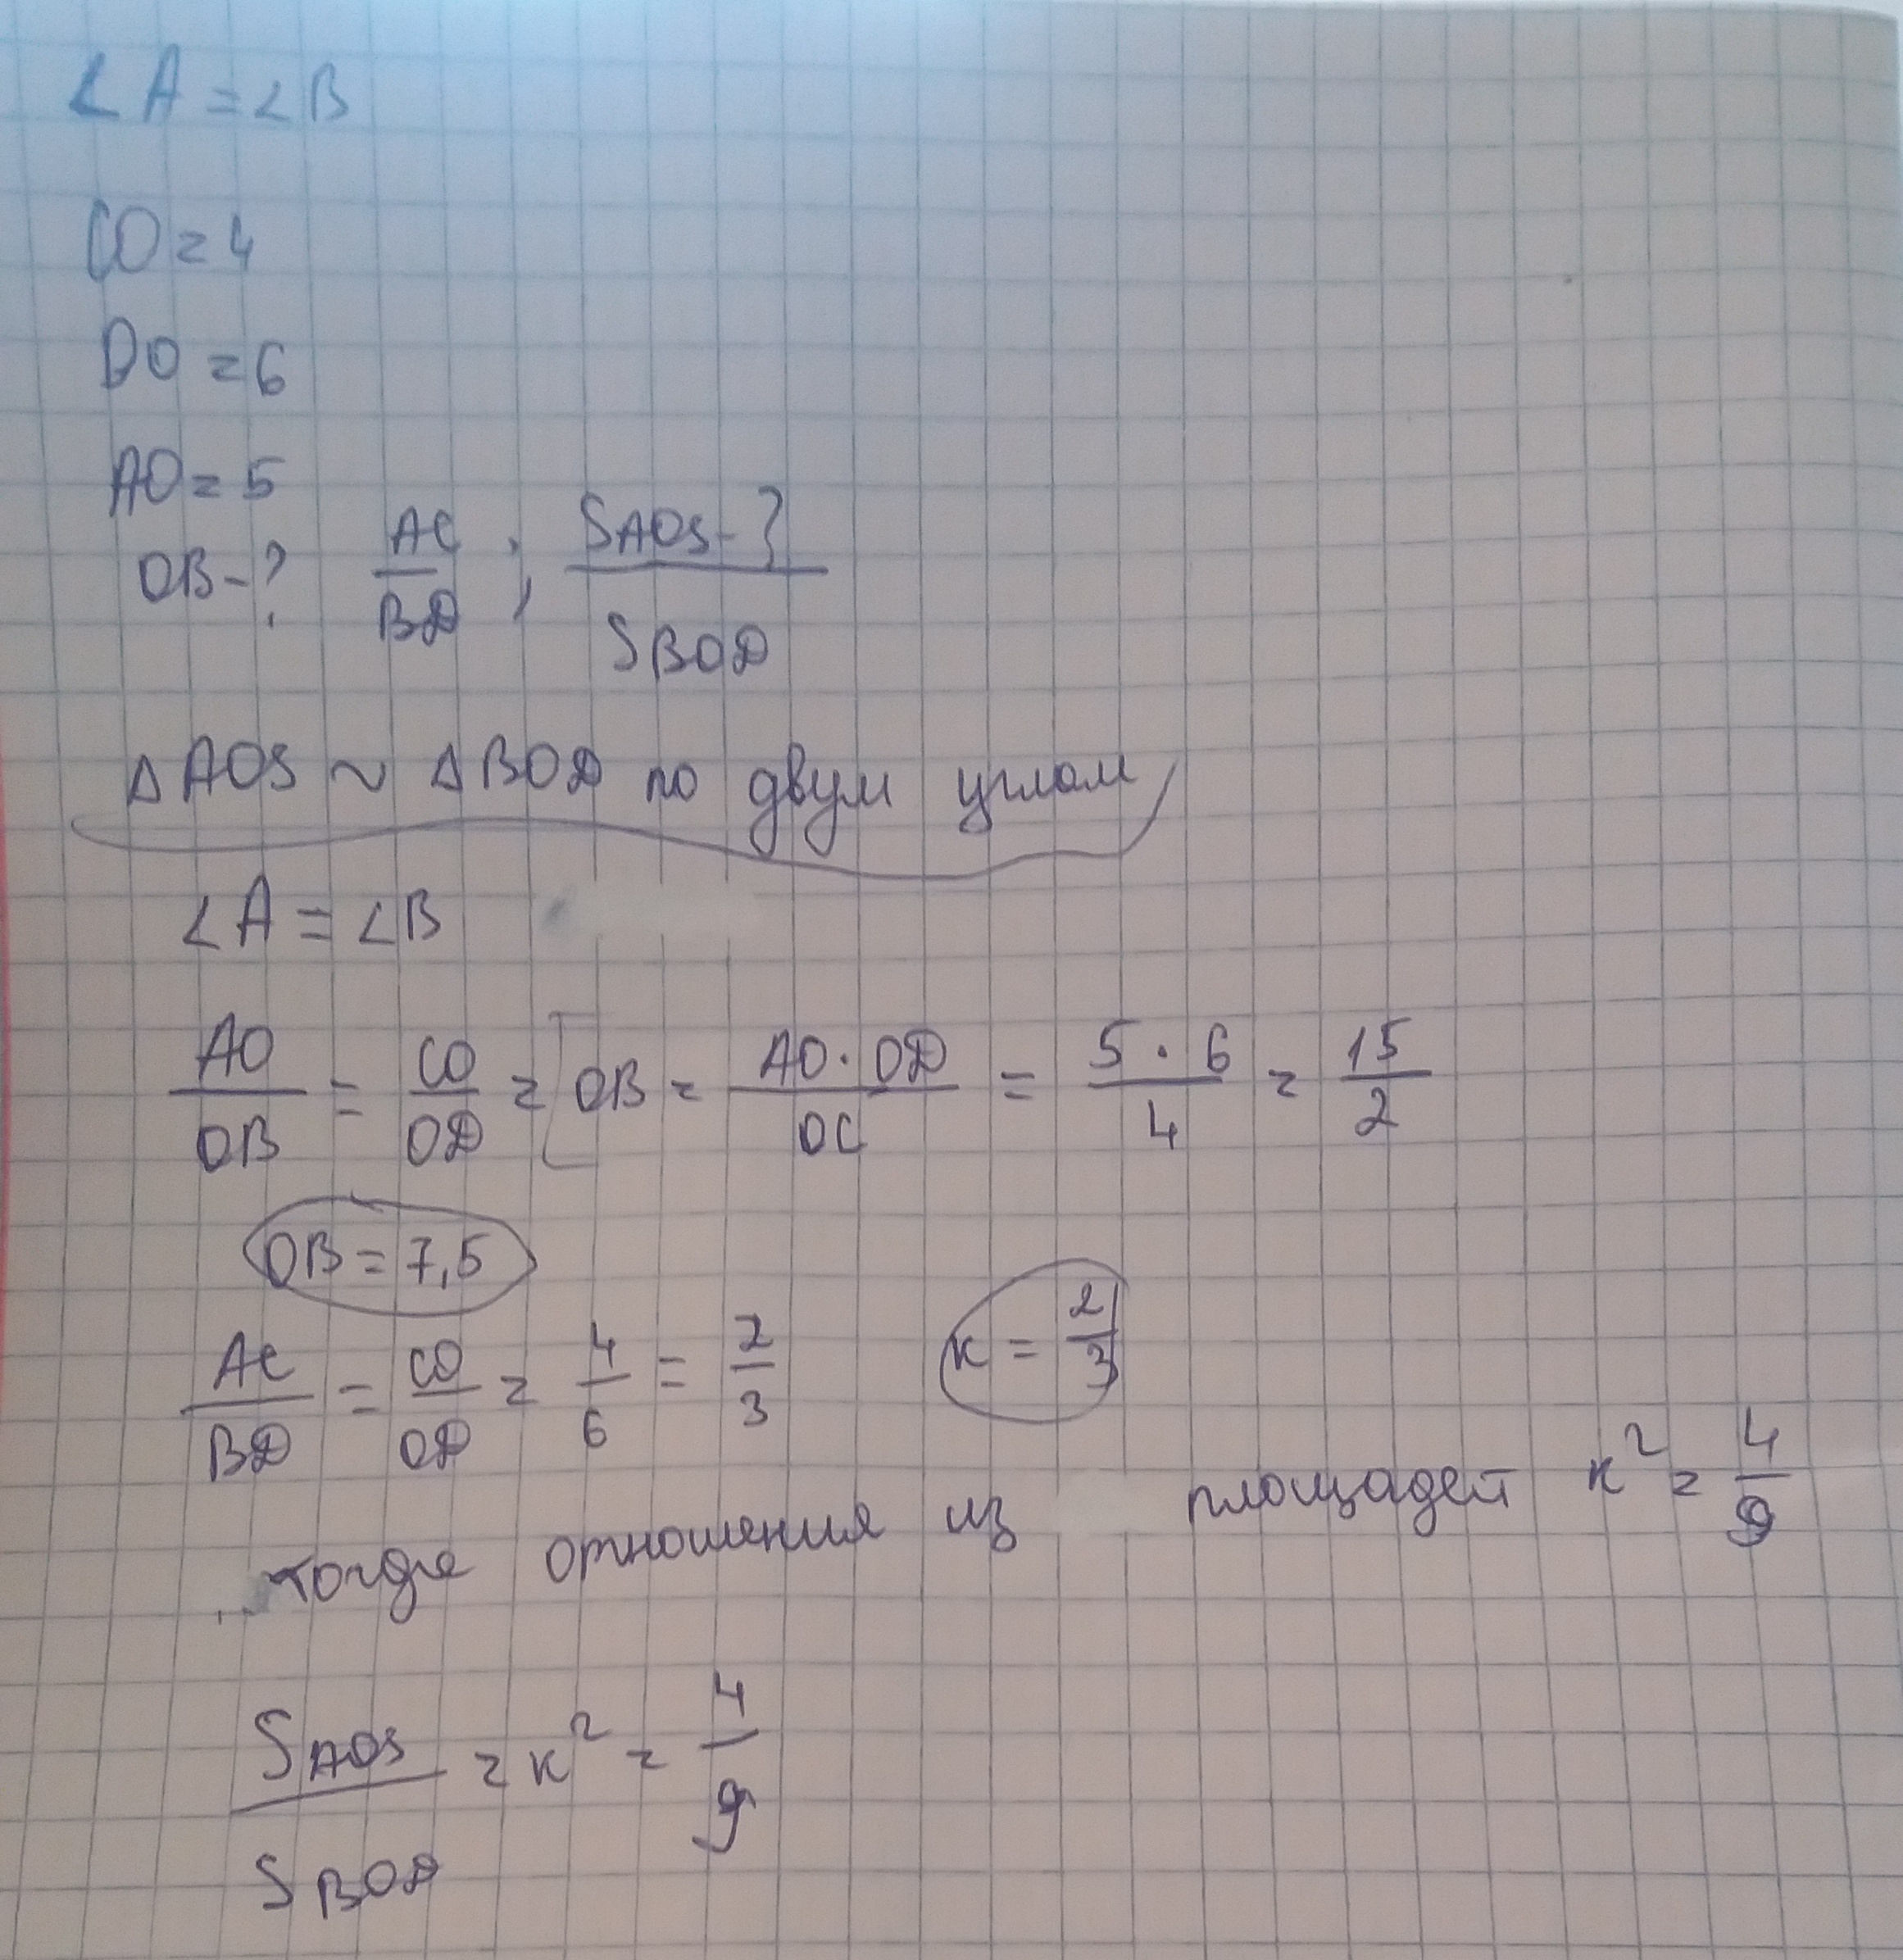 ∠A = ∠B
CO = 4
DO = 6
AO = 5
OB - ? AC/BD ; SAOS/SBOD - ?
Δ AOS ~ Δ BOD по двум углам
∠A = ∠B
AO/OB = CO/OD = [OB = AO · OD/OC = 5 · 6/4 = 15/2
OB = 7,5
AC/BD = CO/OD = 4/6 = 2/3 к = 2/3
тогда отношения из площадей к² = 4/9
SAOS/SBOD = к² = 4/9